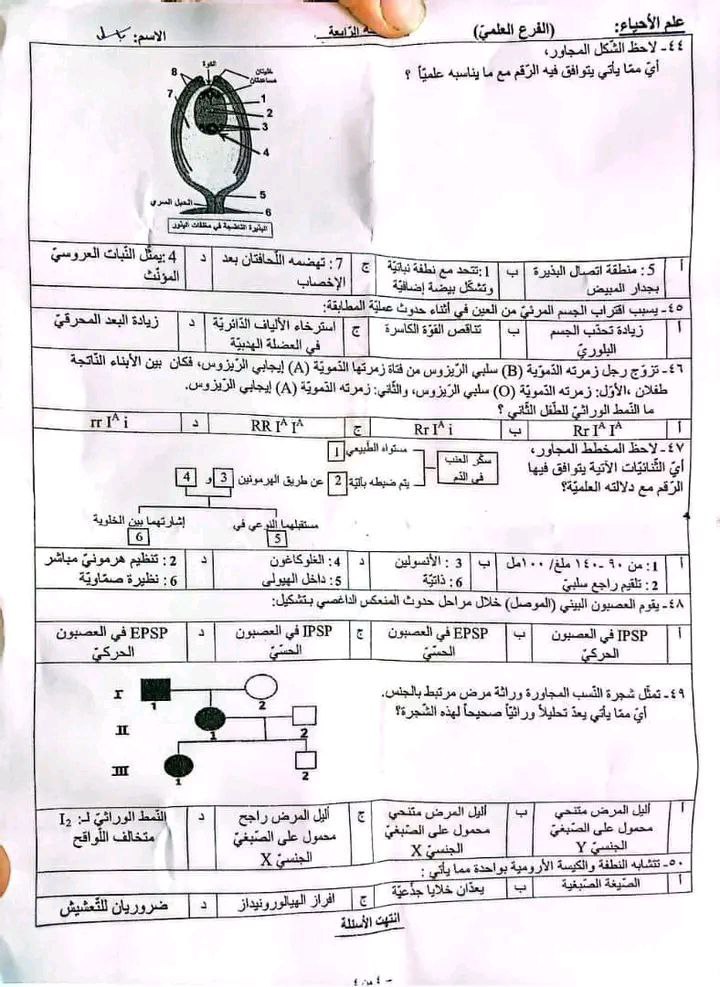 علم الأحياء: (الفرع العلميّ) الرّابعة الاسم:
٤٤- لاحظ الشّكل المجاور،
أيّ ممّا يأتي يتوافق فيه الرّقم مع ما يناسبه علميّاً ؟
الكوة
خليتان مساعدتان
8
7
1
2
3
4
5
6
الحبل السري
البذيرة الناضجة في مغلفات البذور
أ 5: منطقة اتصال البذيرة بجدار المبيض ب 1:تتحد مع نطفة نباتيّة وتشكّل بيضة إضافيّة ج 7: تهضمه اللّحافتان بعد الإخصاب د 4:يمثّل النّبات العروسيّ المؤنّث
٤٥- يسبب اقتراب الجسم المرئيّ من العين في أثناء حدوث عمليّة المطابقة:
أ زيادة تحدّب الجسم البلوريّ ب تناقص القوّة الكاسرة ج استرخاء الألياف الدّائريّة في العضلة الهدبيّة د زيادة البعد المحرقيّ
٤٦- تزوّج رجل زمرته الدّمويّة (B) سلبي الرّيزوس من فتاة زمرتها الدّمويّة (A) إيجابي الرّيزوس، فكان بين الأبناء النّاتجة
طفلان ،الأوّل: زمرته الدّمويّة (O) سلبي الرّيزوس، والثّاني: زمرته الدّمويّة (A) إيجابي الرّيزوس.
ما النّمط الوراثيّ للطّفل الثّاني ؟
أ Rr Iᴬ Iᴬ ب Rr Iᴬ i ج RR Iᴬ Iᴬ د rr Iᴬ i
٤٧- لاحظ المخطط المجاور،
أيّ الثّنائيّات الآتية يتوافق فيها
الرّقم مع دلالته العلميّة؟
سكّر العنب في الدّم
مستواه الطّبيعي 1
يتم ضبطه بآليّة 2 عن طريق الهرمونين 3 و 4
مستقبلهما النّوعي في 5
إشارتهما بين الخلوية 6
أ 1: من ٩٠ -١٤٠ ملغ/ ١٠٠مل 2: تلقيم راجع سلبيّ ب 3 : الأنسولين 6: ذاتيّة د 4: الغلوكاغون 5: داخل الهيولى د 2: تنظيم هرمونيّ مباشر 6: نظيرة صمّاويّة
٤٨- يقوم العصبون البيني (الموصل) خلال مراحل حدوث المنعكس الداغصي بـتشكيل:
أ IPSP في العصبون الحركيّ ب EPSP في العصبون الحسّيّ ج IPSP في العصبون الحسّيّ د EPSP في العصبون الحركيّ
٤٩- تمثّل شجرة النّسب المجاورة وراثة مرض مرتبط بالجنس.
أيّ ممّا يأتي يعدّ تحليلاً وراثيّاً صحيحاً لهذه الشّجرة؟
I 1 2
II 1 2
III 1 2
أ أليل المرض متنحي محمول على الصّبغيّ الجنسيّ Y ب أليل المرض متنحي محمول على الصّبغيّ الجنسيّ X ج أليل المرض راجح محمول على الصّبغيّ الجنسيّ X د النّمط الوراثيّ لـ: I₂ متخالف اللّواقح
٥٠- تتشابه النطفة والكيسة الأرومية بواحدة مما يأتي :
أ الصّيغة الصّبغية ب يعدّان خلايا جذعيّة ج افراز الهيالورونيداز د ضروريان للتّعشيش
انتهت الأسئلة
- ٤ من ٤